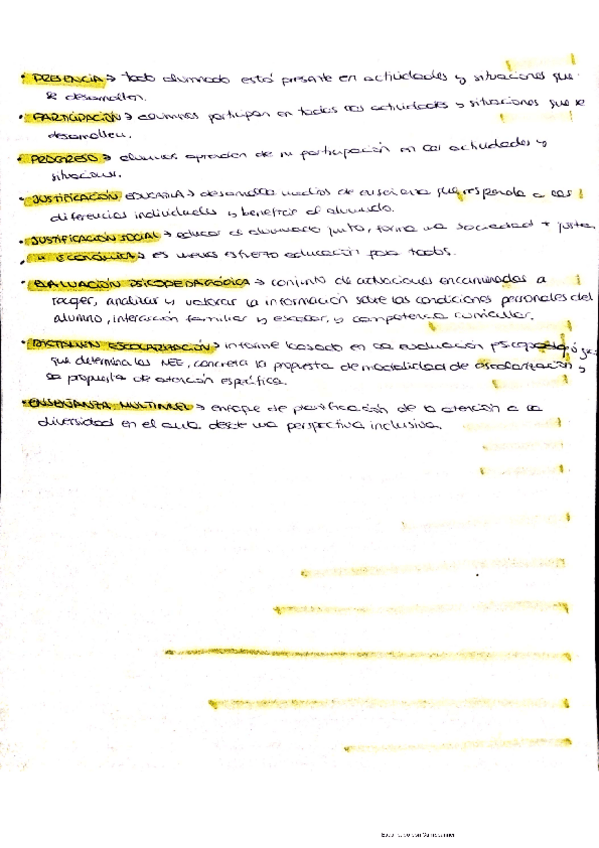 • PRESENCIA → todo alumnado está presente en actividades y situaciones que
se desarrollan.
• PARTICIPACIÓN → alumnos participan en todas las actividades y situaciones que se
desarrollen.
• PROGRESO → alumnos aprenden de su participación en las actividades y
situaciones.
• JUSTIFICACIÓN EDUCATIVA → desarrollar medios de enseñanza que responda a las
diferencias individuales y benefician al alumnado.
• JUSTIFICACIÓN SOCIAL → educar al alumnado junto, forma una sociedad + justa.
• " ECONÓMICA → es menos esfuerzo educación para todos.
• EVALUACIÓN PSICOPEDAGÓGICA → conjunto de actuaciones encaminadas a
recoger, analizar y valorar la información sobre las condiciones personales del
alumno, interacción familiar y escolar, y competencia curricular.
• DICTAMEN ESCOLARIZACIÓN → informe basado en la evaluación psicopedagógica
que determina las NEE, concreta la propuesta de modalidad de escolarización y
la propuesta de atención específica.
• ENSEÑANZA MULTINIVEL → enfoque de planificación de la atención a la
diversidad en el aula desde una perspectiva inclusiva.